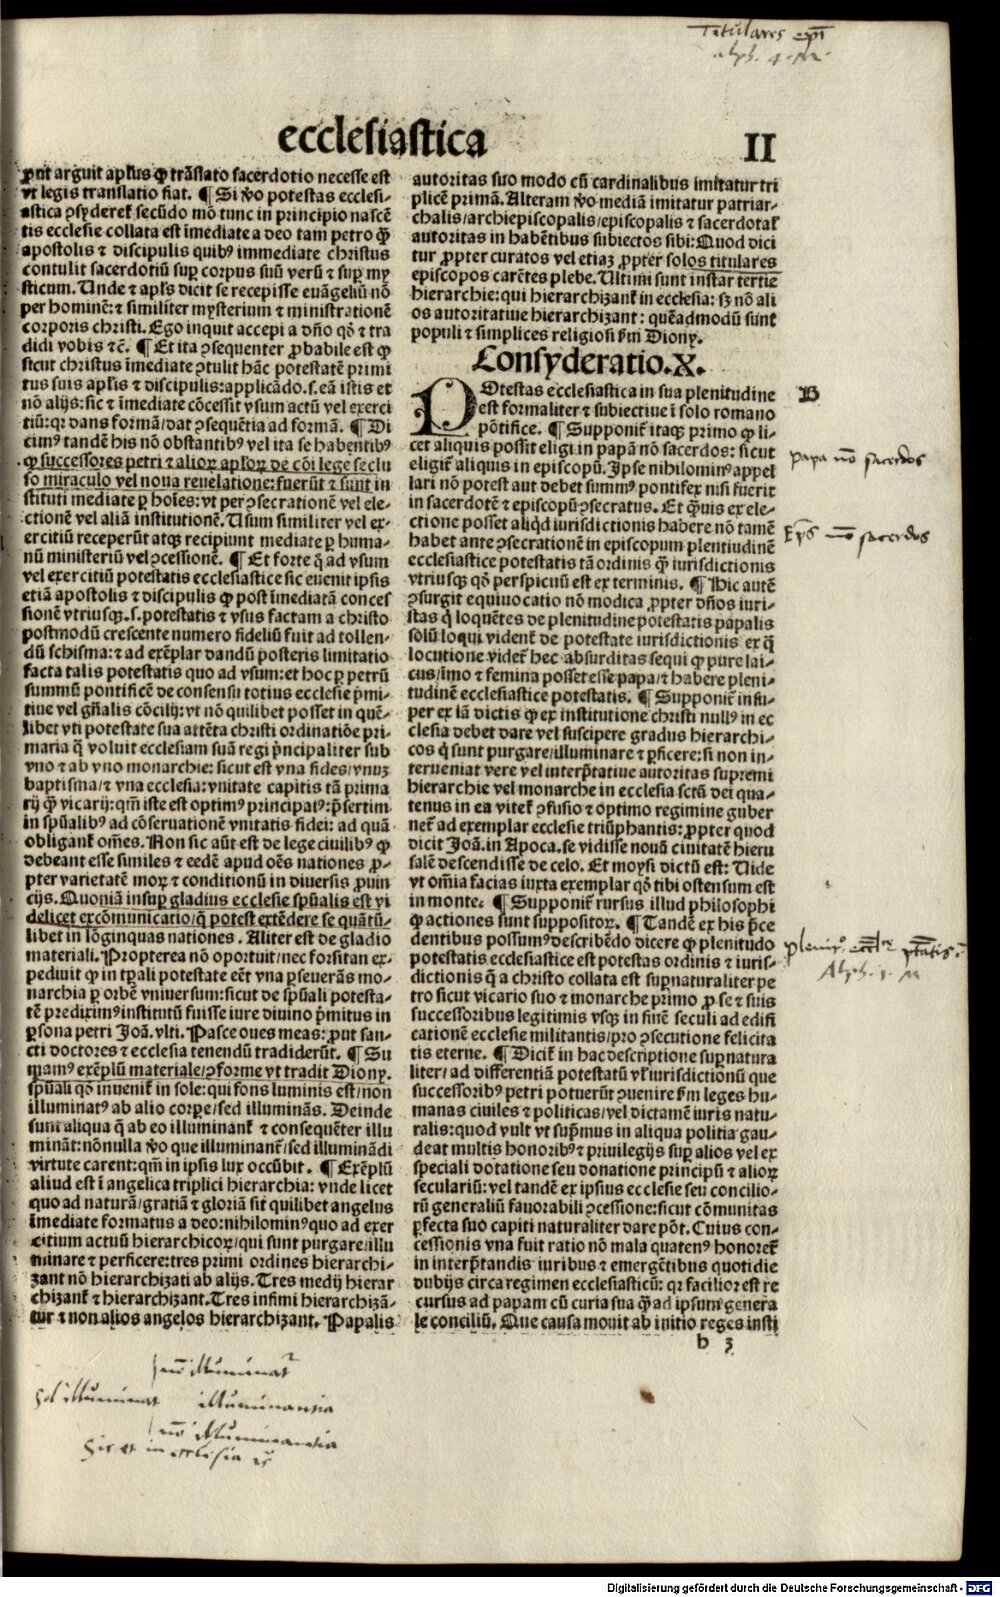 Titulares epī
alph. 4. M.
ecclesiastica
II
ꝓut arguit apl̄us ꝙ trāslato sacerdotio necesse est
vt legis translatio fiat. ¶ Si v̄o potestas ecclesi-
astica ꝯsyderet᷑ secūdo mō tunc in principio nascē
tis ecclesie collata est īmediate a deo tam petro ꝙ̄
apostolis ⁊ discipulis quibꝰ immediate christus
contulit sacerdotiū suꝑ corpus suū verū ⁊ suꝑ my
sticum. Unde ⁊ apl̄s dicit se recepisse euāgeliū nō
per hominē: ⁊ similiter mysterium ⁊ ministrationē
corporis christi. Ego inquit accepi a dn̄o qď ⁊ tra
didi vobis ⁊c̄. ¶ Et ita ꝯsequenter ꝓbabile est ꝙ
sicut christus īmediate ꝯtulit hāc potestatē primi
tus suis apl̄is ⁊ discipulis: applicādo .s. eā istis et
nō alijs: sic ⁊ īmediate cōcessit vsum actū vel exerci
tiū: qꝛ dans formā/ dat ꝯsequētia ad formā. ¶ Di
cimꝰ tandē his nō obstantibꝰ vel ita se habentibꝰ
ꝙ successores petri ⁊ alioꝝ apl̄oꝝ de cōi lege seclu
so miraculo vel noua reuelatione: fuerūt ⁊ sunt in
stituti mediate ꝑ hoīes: vt per ꝯsecrationē vel ele-
ctionē vel aliā institutionē. Usum similiter vel ex-
ercitiū receperūt atqꝫ recipiunt mediate ꝑ huma-
nū ministeriū vel ꝯcessionē. ¶ Et forte ꝙ̄ ad vsum
vel exercitiū potestatis ecclesiastice sic euenit ipsis
etiā apostolis ⁊ discipulis ꝙ post īmediatā conces
sionē vtriusqꝫ .s. potestatis ⁊ vsus factam a christo
postmodū crescente numero fideliū fuit ad tollen-
dū schisma: ⁊ ad exēplar dandū posteris limitatio
facta talis potestatis quo ad vsum: et hoc ꝑ petrū
summū pontificē de consensu totius ecclesie p̄mi-
tiue vel gn̄alis cōcilij: vt nō quilibet posset in quē-
libet vti potestate sua attēta christi ordinatiōe pri-
maria q̄ voluit ecclesiam suā regi pͥncipaliter sub
vno ⁊ ab vno monarchie: sicut est vna fides/ vnuꝫ
baptisma/ ⁊ vna ecclesia: vnitate capitis tā prima
rij ꝙ̄ vicarij: qm̄ iste est optimꝰ principatꝰ: p̄sertim
in spūalibꝰ ad cōseruationē vnitatis fidei: ad quā
obligant᷑ om̄es. Non sic aūt est de lege ciuilibꝰ ꝙ
debeant esse similes ⁊ eedē apud oēs nationes ꝓ-
pter varietatē moꝝ ⁊ conditionū in diuersis ꝓuin
cijs. Quoniā insuꝑ gladius ecclesie spūalis est vi
delicet excōmunicatio/ q̄ potest extēdere se quātū-
libet in lōginquas nationes. Aliter est de gladio
materiali. Propterea nō oportuit/ nec forsitan ex-
pediuit ꝙ in tꝑali potestate eēt vna ꝑseuerās mo-
narchia ꝑ orbē vniuersum: sicut de spūali potesta-
tē prediximꝰ institutū fuisse iure diuino pͥmitus in
ꝑsona petri Joā. vlti. Pasce oues meas: ꝓut san-
cti doctores ⁊ ecclesia tenendū tradiderūt. ¶ Su
mamꝰ exēplū materiale/ ꝯforme vt tradit Dionꝩ.
spūali/ qď inuenit᷑ in sole: qui fons luminis est/ non
illuminatꝰ ab alio corꝑe/ sed illuminās. Deinde
sunt aliqua q̄ ab eo illuminant᷑ ⁊ consequēter illu
mināt: nōnulla v̄o que illuminant᷑/ sed illuminādi
virtute carent: qm̄ in ipsis lux occūbit. ¶ Exēplū
aliud est ī angelica triplici hierarchia: vnde licet
quo ad naturā/ gratiā ⁊ gloriā sit quilibet angelus
īmediate formatus a deo: nihilominꝰ quo ad exer
citium actuū hierarchicoꝝ/ qui sunt purgare/ illu
minare ⁊ perficere: tres primi ordines hierarchi-
zant nō hierarchizati ab alijs. Tres medij hierar
chizant᷑ ⁊ hierarchizant. Tres infimi hierarchizā-
tur ⁊ non alios angelos hierarchizant. Papalis
autoritas suo modo cū cardinalibus imitatur tri
plicē primā. Alteram v̄o mediā imitatur patriar-
chalis/ archiepiscopalis/ episcopalis ⁊ sacerdotal᷑
autoritas in habētibus subiectos sibi: Quod dici
tur ꝓpter curatos vel etiaꝫ ꝓpter solos titulares
episcopos carētes plebe. Ultimi sunt instar tertie
hierarchie: qui hierarchizant᷑ in ecclesia: sꝫ nō ali
os autoritatiue hierarchizant: quēadmodū sunt
populi ⁊ simplices religiosi scd̄m Dionꝩ.
Consyderatio. X.
POtestas ecclesiastica in sua plenitudine
est formaliter ⁊ subiectiue ī solo romano
pōtifice. ¶ Supponit᷑ itaqꝫ primo ꝙ li-
cet aliquis possit eligi in papā nō sacerdos: sicut
eligit᷑ aliquis in episcopū. Ipse nihilominꝰ appel
lari nō potest aut debet summꝰ pontifex nisi fuerit
in sacerdotē ⁊ episcopū ꝯsecratus. Et ꝙ̄uis ex ele-
ctione posset aliqͥd iurisdictionis habere nō tamē
habet ante ꝯsecrationē in episcopum plenitudinē
ecclesiastice potestatis tā ordinis ꝙ̄ iurisdictionis
vtriusqꝫ qď perspicuū est ex terminis. ¶ Hic autē
ꝯsurgit equiuocatio nō modica ꝓpter dn̄os iuri-
stas q̄ loquētes de plenitudine potestatis papalis
solū loqui vident᷑ de potestate iurisdictionis ex q̄
locutione videt᷑ hec absurditas sequi ꝙ pure lai-
cus/ imo ⁊ femina posset esse papa/ ⁊ habere pleni-
tudinē ecclesiastice potestatis. ¶ Supponit᷑ insu-
per ex iā dictis ꝙ ex institutione christi nullꝰ in ec
clesia debet dare vel suscipere gradus hierarchi-
cos q̄ sunt purgare/ illuminare ⁊ ꝑficere: si non in-
terueniat vere vel interp̄tatiue autoritas supremi
hierarchie vel monarche in ecclesia sctā dei qua-
tenus in ea vitet᷑ ꝯfusio ⁊ optimo regimine guber
net᷑ ad exemplar ecclesie triūphantis: ꝓpter quod
dicit Joā. in Apoca. se vidisse nouā ciuitatē hieru
salē descendisse de celo. Et moysi dictū est: Uide
vt om̄ia facias iuxta exemplar qď tibi ostensum est
in monte. ¶ Supponit᷑ rursus illud philosophi
ꝙ actiones sunt suppositoꝝ. ¶ Tandē ex his p̄ce
dentibus possumꝰ describēdo dicere ꝙ plenitudo
potestatis ecclesiastice est potestas ordinis ⁊ iuris-
dictionis q̄ a christo collata est suꝑnaturaliter pe
tro sicut vicario suo ⁊ monarche primo ꝓ se ⁊ suis
successoribus legitimis vsqꝫ in finē seculi ad edifi
cationē ecclesie militantis/ pro ꝯsecutione felicita
tis eterne. ¶ Dicit᷑ in hac descriptione suꝑnatura
liter/ ad differentiā potestatū vl᷑ iurisdictionū que
successoribꝰ petri potuerūt ꝯuenire scd̄m leges hu-
manas ciuiles ⁊ politicas/ vel dictamē iuris natu-
ralis: quod vult vt sup̄mus in aliqua politia gau-
deat multis honoribꝰ ⁊ priuilegijs suꝑ alios vel ex
speciali dotatione seu donatione principū ⁊ alioꝝ
seculariū: vel tandē ex ipsius ecclesie seu concilio-
rū generaliū fauorabili ꝯcessione: sicut cōmunitas
ꝑfecta suo capiti naturaliter dare pōt. Cuius con-
cessionis vna fuit ratio nō mala quatenꝰ honoret᷑
in interp̄tandis iuribus ⁊ emergētibus quotidie
dubijs circa regimen ecclesiasticū: qꝛ facilior est re
cursus ad papam cū curia sua ꝙ̄ ad ipsum genera
le conciliū. Que causa mouit ab initio reges insti
b 3
B
papa nō sacerdos
Ep̄s nō sacerdos
Alph. 1. M
nō illuminat᷑
Sol illuminat illuminantia
nō illuminantia
Sic et in ecclesia
Digitalisierung gefördert durch die Deutsche Forschungsgemeinschaft - DFG